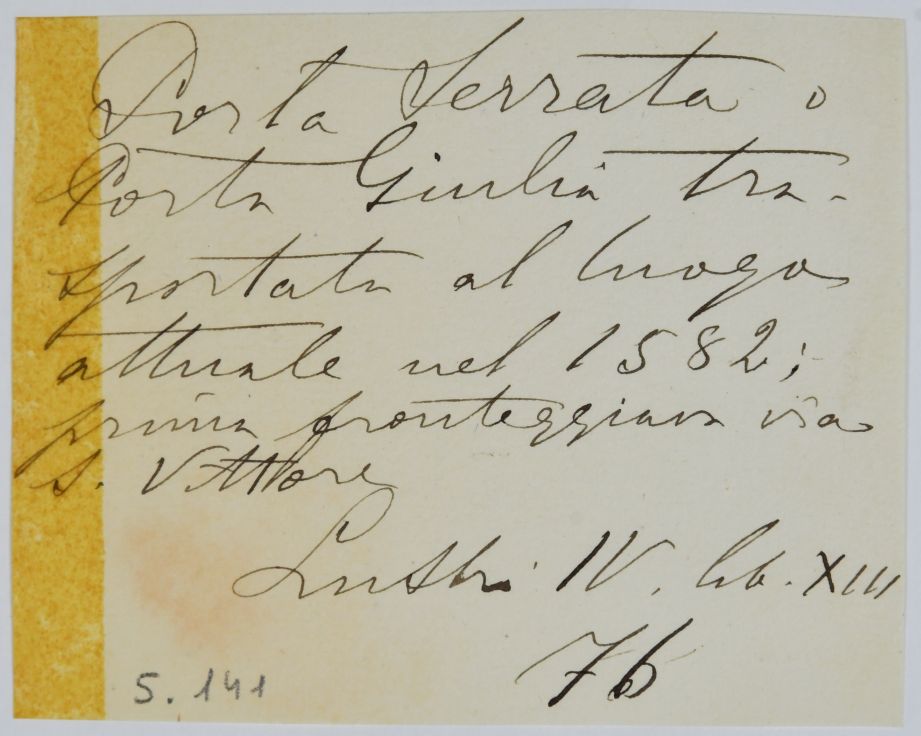 Porta Serrata o
Porta Giulia tra-
sportata al luogo
attuale nel 1582;
prima fronteggiava via
S. Vittore
Lustri IV. lib. XIII
76
S. 141